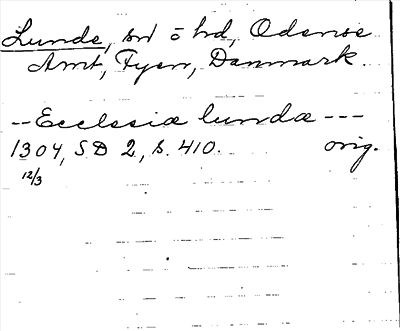 Lunde, sn o hd, Odense
Amt, Fyen, Danmark.
-- Ecclesiæ lundæ ---
1304, SD 2, s. 410. orig.
12/3